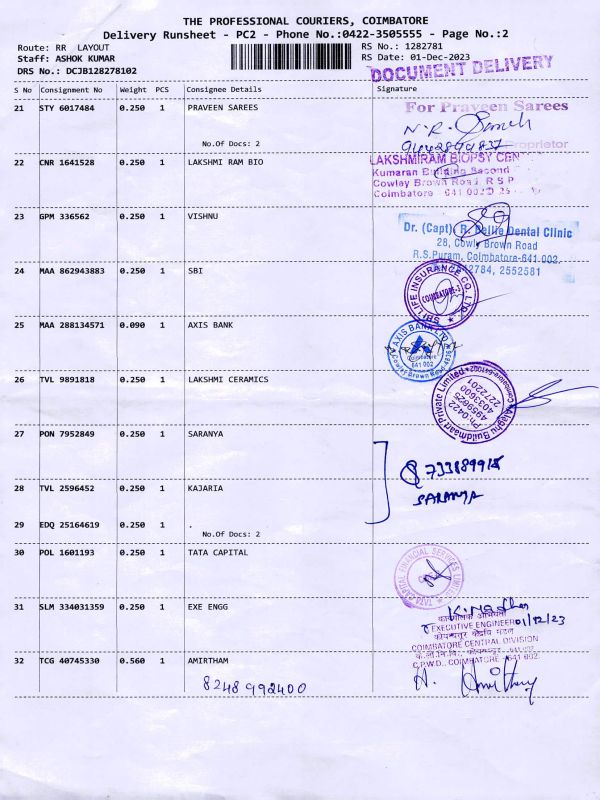 THE PROFESSIONAL COURIERS, COIMBATORE
Delivery Runsheet - PC2 - Phone No.:0422-3505555 - Page No.:2
Route: RR LAYOUT
RS No.: 1282781
Staff: ASHOK KUMAR
RS Date: 01-Dec-2023
DRS No.: DCJB128278102
DOCUMENT DELIVERY
S No Consignment No Weight PCS Consignee Details Signature
21 STY 6017484 0.250 1 PRAVEEN SAREES
For Praveen Sarees
No.Of Docs: 2
Proprietor
22 CNR 1641528 0.250 1 LAKSHMI RAM BIO
LAKSHMIRAM BIOPSY CEN
Kumaran Building Second
Cowley Brown Road R S P
Coimbatore 641 002
23 GPM 336562 0.250 1 VISHNU
Dr. (Capt) R. Dental Clinic
28, Cowly Brown Road
R.S.Puram, Coimbatore-641 002.
2784, 2552581
24 MAA 862943883 0.250 1 SBI
SBI LIFE INSURANCE CO. LTD.
COIMBATORE-2
25 MAA 288134571 0.090 1 AXIS BANK
AXIS BANK LTD
Coimbatore
641 002
26 TVL 9891818 0.250 1 LAKSHMI CERAMICS
Buildmaari Private Limited
Ph:0422
4959625
4033600
2272201
27 PON 7952849 0.250 1 SARANYA
SARANYA
28 TVL 2596452 0.250 1 KAJARIA
29 EDQ 25164619 0.250 1 .
No.Of Docs: 2
30 POL 1601193 0.250 1 TATA CAPITAL
TATA CAPITAL FINANCIAL SERVICES LIMITED
31 SLM 334031359 0.250 1 EXE ENGG
01/12/23
EXECUTIVE ENGINEER
COIMBATORE CENTRAL DIVISION
C.P.W.D., COIMBATORE - 641 002.
32 TCG 40745330 0.560 1 AMIRTHAM
8248992400